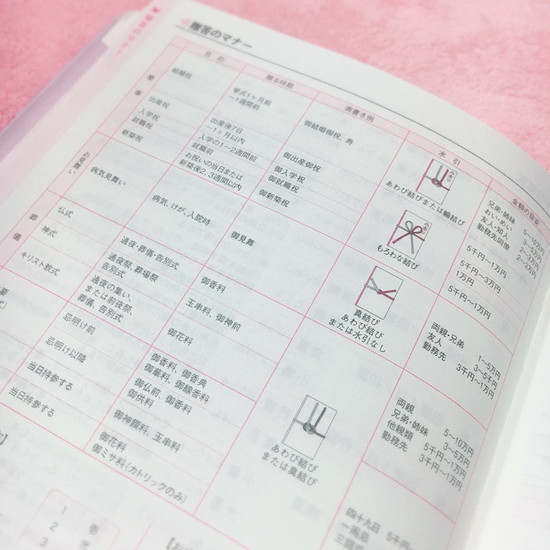 贈答のマナー
名称 贈る時期 表書き例 水引 金額の目安
結婚祝 挙式1ヶ月前
〜1週間前 御結婚御祝、寿
出産祝 出産後7日
〜1ヶ月以内 御出産御祝
入学祝 入学の1〜2週間前 御入学祝
就職祝 就職前 御就職祝
新築祝 お祝いの当日または
新築後2、3週間以内 御新築祝
あわび結びまたは輪結び
もろわな結び
兄弟・姉妹 5〜10万円
おい・めい
友人・知人
勤務先同僚
5千円〜1万円
5千円〜3万円
1万円
5千円〜1万円
病気見舞い 病気、けが、入院時 御見舞
真結び
あわび結び
または水引なし
5千円〜1万円
葬儀
仏式 通夜・葬儀・告別式 御香料
神式 通夜祭、葬場祭
告別式 玉串料、御神前
キリスト教式 通夜の集い、
または前夜祭、
葬儀、告別式 御花料
両親・兄弟 1〜5万円
友人 3〜5千円
勤務先 3千円〜1万円
忌明け前 御香料、御香典
御華料、御線香料
忌明け以降 御仏前、御香料
御供料
当日持参する 御神饌料、玉串料
当日持参する 御花料
御ミサ料(カトリックのみ)
あわび結び
または真結び
両親 5〜10万円
兄弟・姉妹 3〜5万円
他親類 5千円〜1万円
勤務先 3千円〜1万円
四十九日 5千円〜
一周忌
三回忌
1 壱
2
3